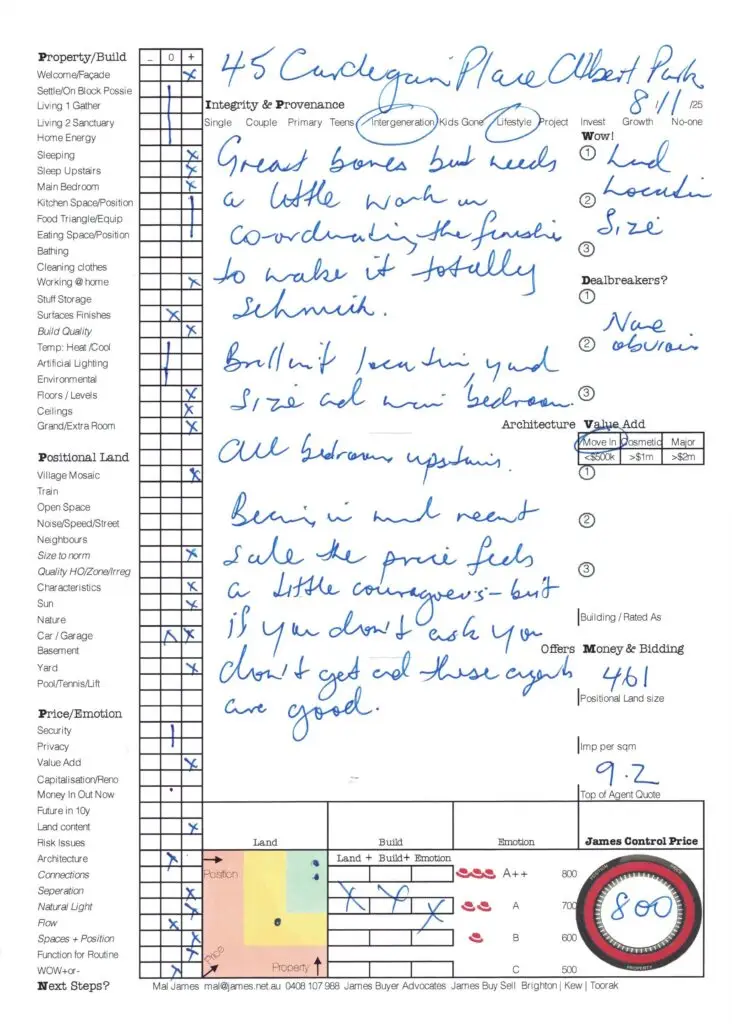 45 Cardigan Place Albert Park
8/11/25
Property/Build
_ 0 +
Welcome/Façade
Settle/On Block Possie
Living 1 Gather
Living 2 Sanctuary
Home Energy
Sleeping
Sleep Upstairs
Main Bedroom
Kitchen Space/Position
Food Triangle/Equip
Eating Space/Position
Bathing
Cleaning clothes
Working @ home
Stuff Storage
Surfaces Finishes
Build Quality
Temp: Heat /Cool
Artificial Lighting
Environmental
Floors / Levels
Ceilings
Grand/Extra Room
Positional Land
Village Mosaic
Train
Open Space
Noise/Speed/Street
Neighbours
Size to norm
Quality HO/Zone/Irreg
Characteristics
Sun
Nature
Car / Garage
Basement
Yard
Pool/Tennis/Lift
Price/Emotion
Security
Privacy
Value Add
Capitalisation/Reno
Money In Out Now
Future in 10y
Land content
Risk Issues
Architecture
Connections
Seperation
Natural Light
Flow
Spaces + Position
Function for Routine
WOW+or-
Next Steps?
Integrity & Provenance
Single Couple Primary Teens Intergeneration Kids Gone Lifestyle Project Invest Growth No-one
Great bones but needs
a little work on
co-ordinating the finishes
to make it totally
schmick.
Brilliant location, yard
size and main bedroom.
All bedrooms upstairs.
Bearing in mind recent
sale the price feels
a little courageous - but
if you don't ask you
don't get and these agents
are good.
Wow!
1 Land
2 Location
Size
3
Dealbreakers?
1
None
2 obvious
3
Architecture Value Add
Move In Cosmetic Major
<$500k >$1m >$2m
1
2
3
Building / Rated As
Offers Money & Bidding
461
Positional Land size
Imp per sqm
9.2
Top of Agent Quote
Land
Position
Price
Property
Build
Land + Build + Emotion
Emotion
A++ 800
A 700
B 600
C 500
James Control Price
800
PROPERTY
Mal James mal@james.net.au 0408 107 988 James Buyer Advocates James Buy Sell Brighton | Kew | Toorak